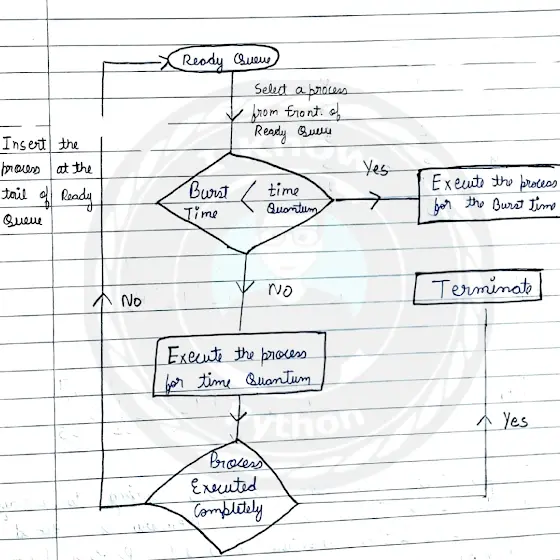 Ready Queue
Select a process
from front of
Ready Queue
Insert the
process at the
tail of Ready
Queue
Burst < time
Time Quantum
Yes
Execute the process
for the Burst Time
No
NO
Terminate
Execute the process
for time Quantum
Yes
Process
Executed
Completely
ython